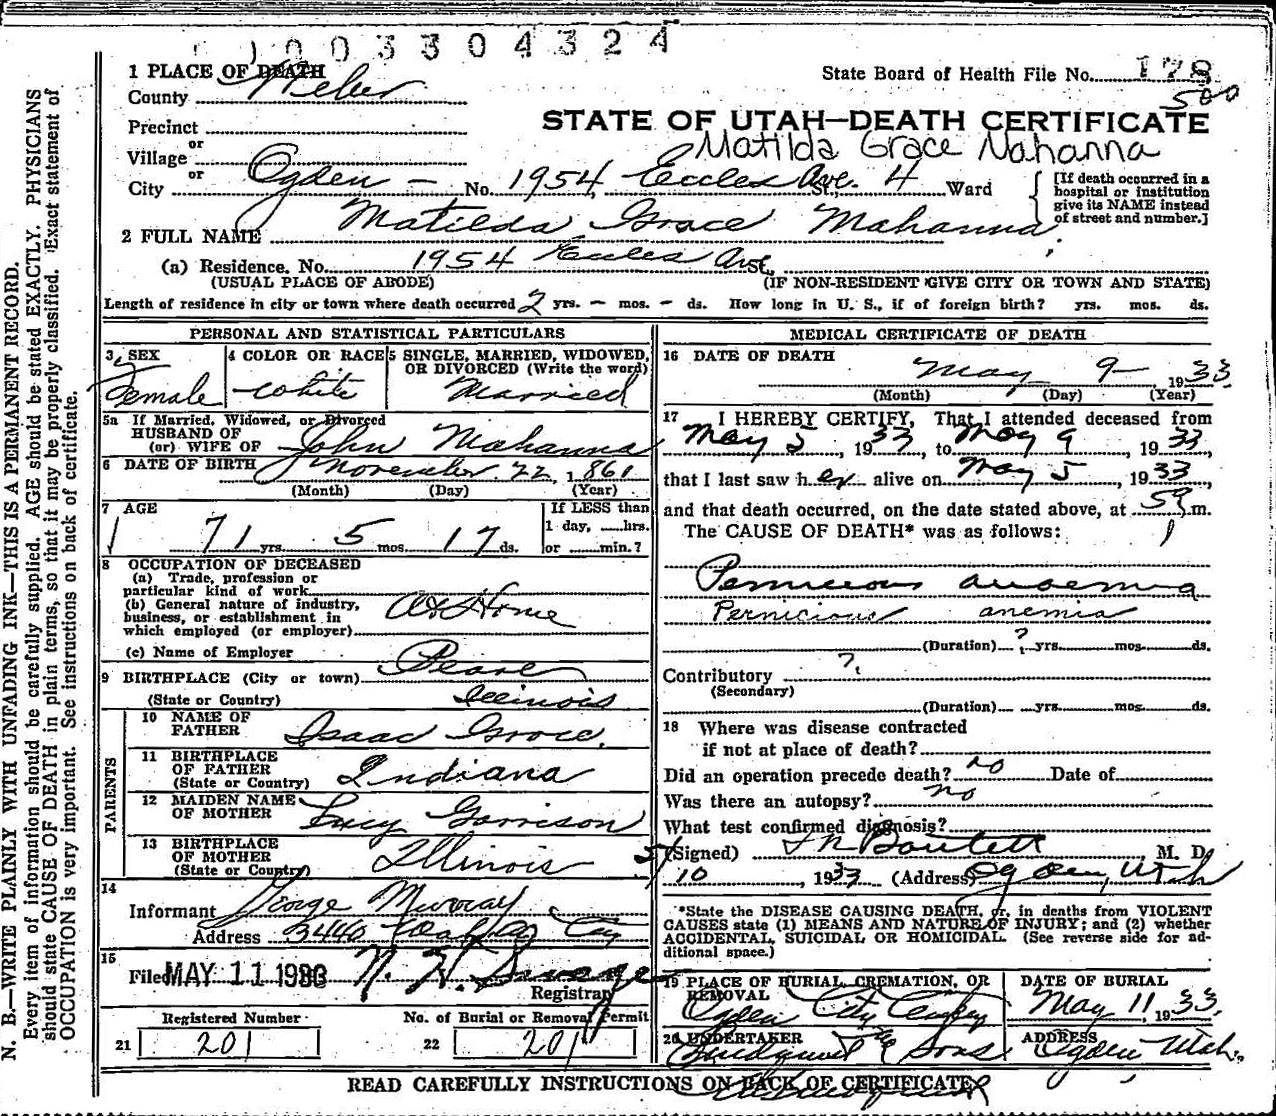 003304324
1 PLACE OF DEATH
State Board of Health File No. 178
County Weber
500
Precinct
STATE OF UTAH—DEATH CERTIFICATE
or
Matilda Grace Mahanna
Village
or
City Ogden — No. 1954 Eccles Ave. St., 4 Ward
[If death occurred in a hospital or institution give its NAME instead of street and number.]
2 FULL NAME Matilda Grace Mahanna
(a) Residence. No. 1954 Eccles Ave St.,
(USUAL PLACE OF ABODE) (IF NON-RESIDENT GIVE CITY OR TOWN AND STATE)
Length of residence in city or town where death occurred 2 yrs. – mos. – ds. How long in U. S., if of foreign birth? yrs. mos. ds.
PERSONAL AND STATISTICAL PARTICULARS
3 SEX
Female
4 COLOR OR RACE
White
5 SINGLE, MARRIED, WIDOWED,
OR DIVORCED (Write the word)
Married
5a If Married, Widowed, or Divorced
HUSBAND OF
(or) WIFE OF John Mahanna
6 DATE OF BIRTH November 22, 1861
(Month) (Day) (Year)
7 AGE
71 yrs. 5 mos. 17 ds.
If LESS than
1 day, hrs.
or min.?
8 OCCUPATION OF DECEASED
(a) Trade, profession or
particular kind of work
(b) General nature of industry,
business, or establishment in
which employed (or employer)
At Home
(c) Name of Employer
9 BIRTHPLACE (City or town) Pearl
(State or Country) Illinois
PARENTS
10 NAME OF
FATHER Isaac Grace
11 BIRTHPLACE
OF FATHER
(State or Country) Indiana
12 MAIDEN NAME
OF MOTHER Lucy Garrison
13 BIRTHPLACE
OF MOTHER
(State or Country) Illinois
14
Informant George Murray
Address 3446
15
Filed MAY 11 1933 Registrar
Registered Number
21 201
No. of Burial or Removal Permit
22 201
MEDICAL CERTIFICATE OF DEATH
16 DATE OF DEATH
May 9 – 1933
(Month) (Day) (Year)
17 I HEREBY CERTIFY, That I attended deceased from
May 5, 1933, to May 9, 1933
that I last saw her alive on May 5, 1933
and that death occurred, on the date stated above, at 5 a m.
The CAUSE OF DEATH* was as follows:
Pernicious anaemia
Pernicious anemia
(Duration) ? yrs. mos. ds.
Contributory ?
(Secondary)
(Duration) yrs. mos. ds.
18 Where was disease contracted
if not at place of death?
Did an operation precede death? no Date of
Was there an autopsy? no
What test confirmed diagnosis?
(Signed) Bartlett M. D.
5/10, 1933 (Address) Ogden, Utah
*State the DISEASE CAUSING DEATH, or, in deaths from VIOLENT
CAUSES state (1) MEANS AND NATURE OF INJURY; and (2) whether
ACCIDENTAL, SUICIDAL OR HOMICIDAL. (See reverse side for ad-
ditional space.)
19 PLACE OF BURIAL, CREMATION, OR
REMOVAL
Ogden City
DATE OF BURIAL
May 11, 1933
20 UNDERTAKER
Lindquist & Sons
ADDRESS
Ogden Utah
READ CAREFULLY INSTRUCTIONS ON BACK OF CERTIFICATE
N. B.—WRITE PLAINLY WITH UNFADING INK—THIS IS A PERMANENT RECORD.
Every item of information should be carefully supplied. AGE should be stated EXACTLY. PHYSICIANS
should state CAUSE OF DEATH in plain terms, so that it may be properly classified. Exact statement of
OCCUPATION is very important. See instructions on back of certificate.